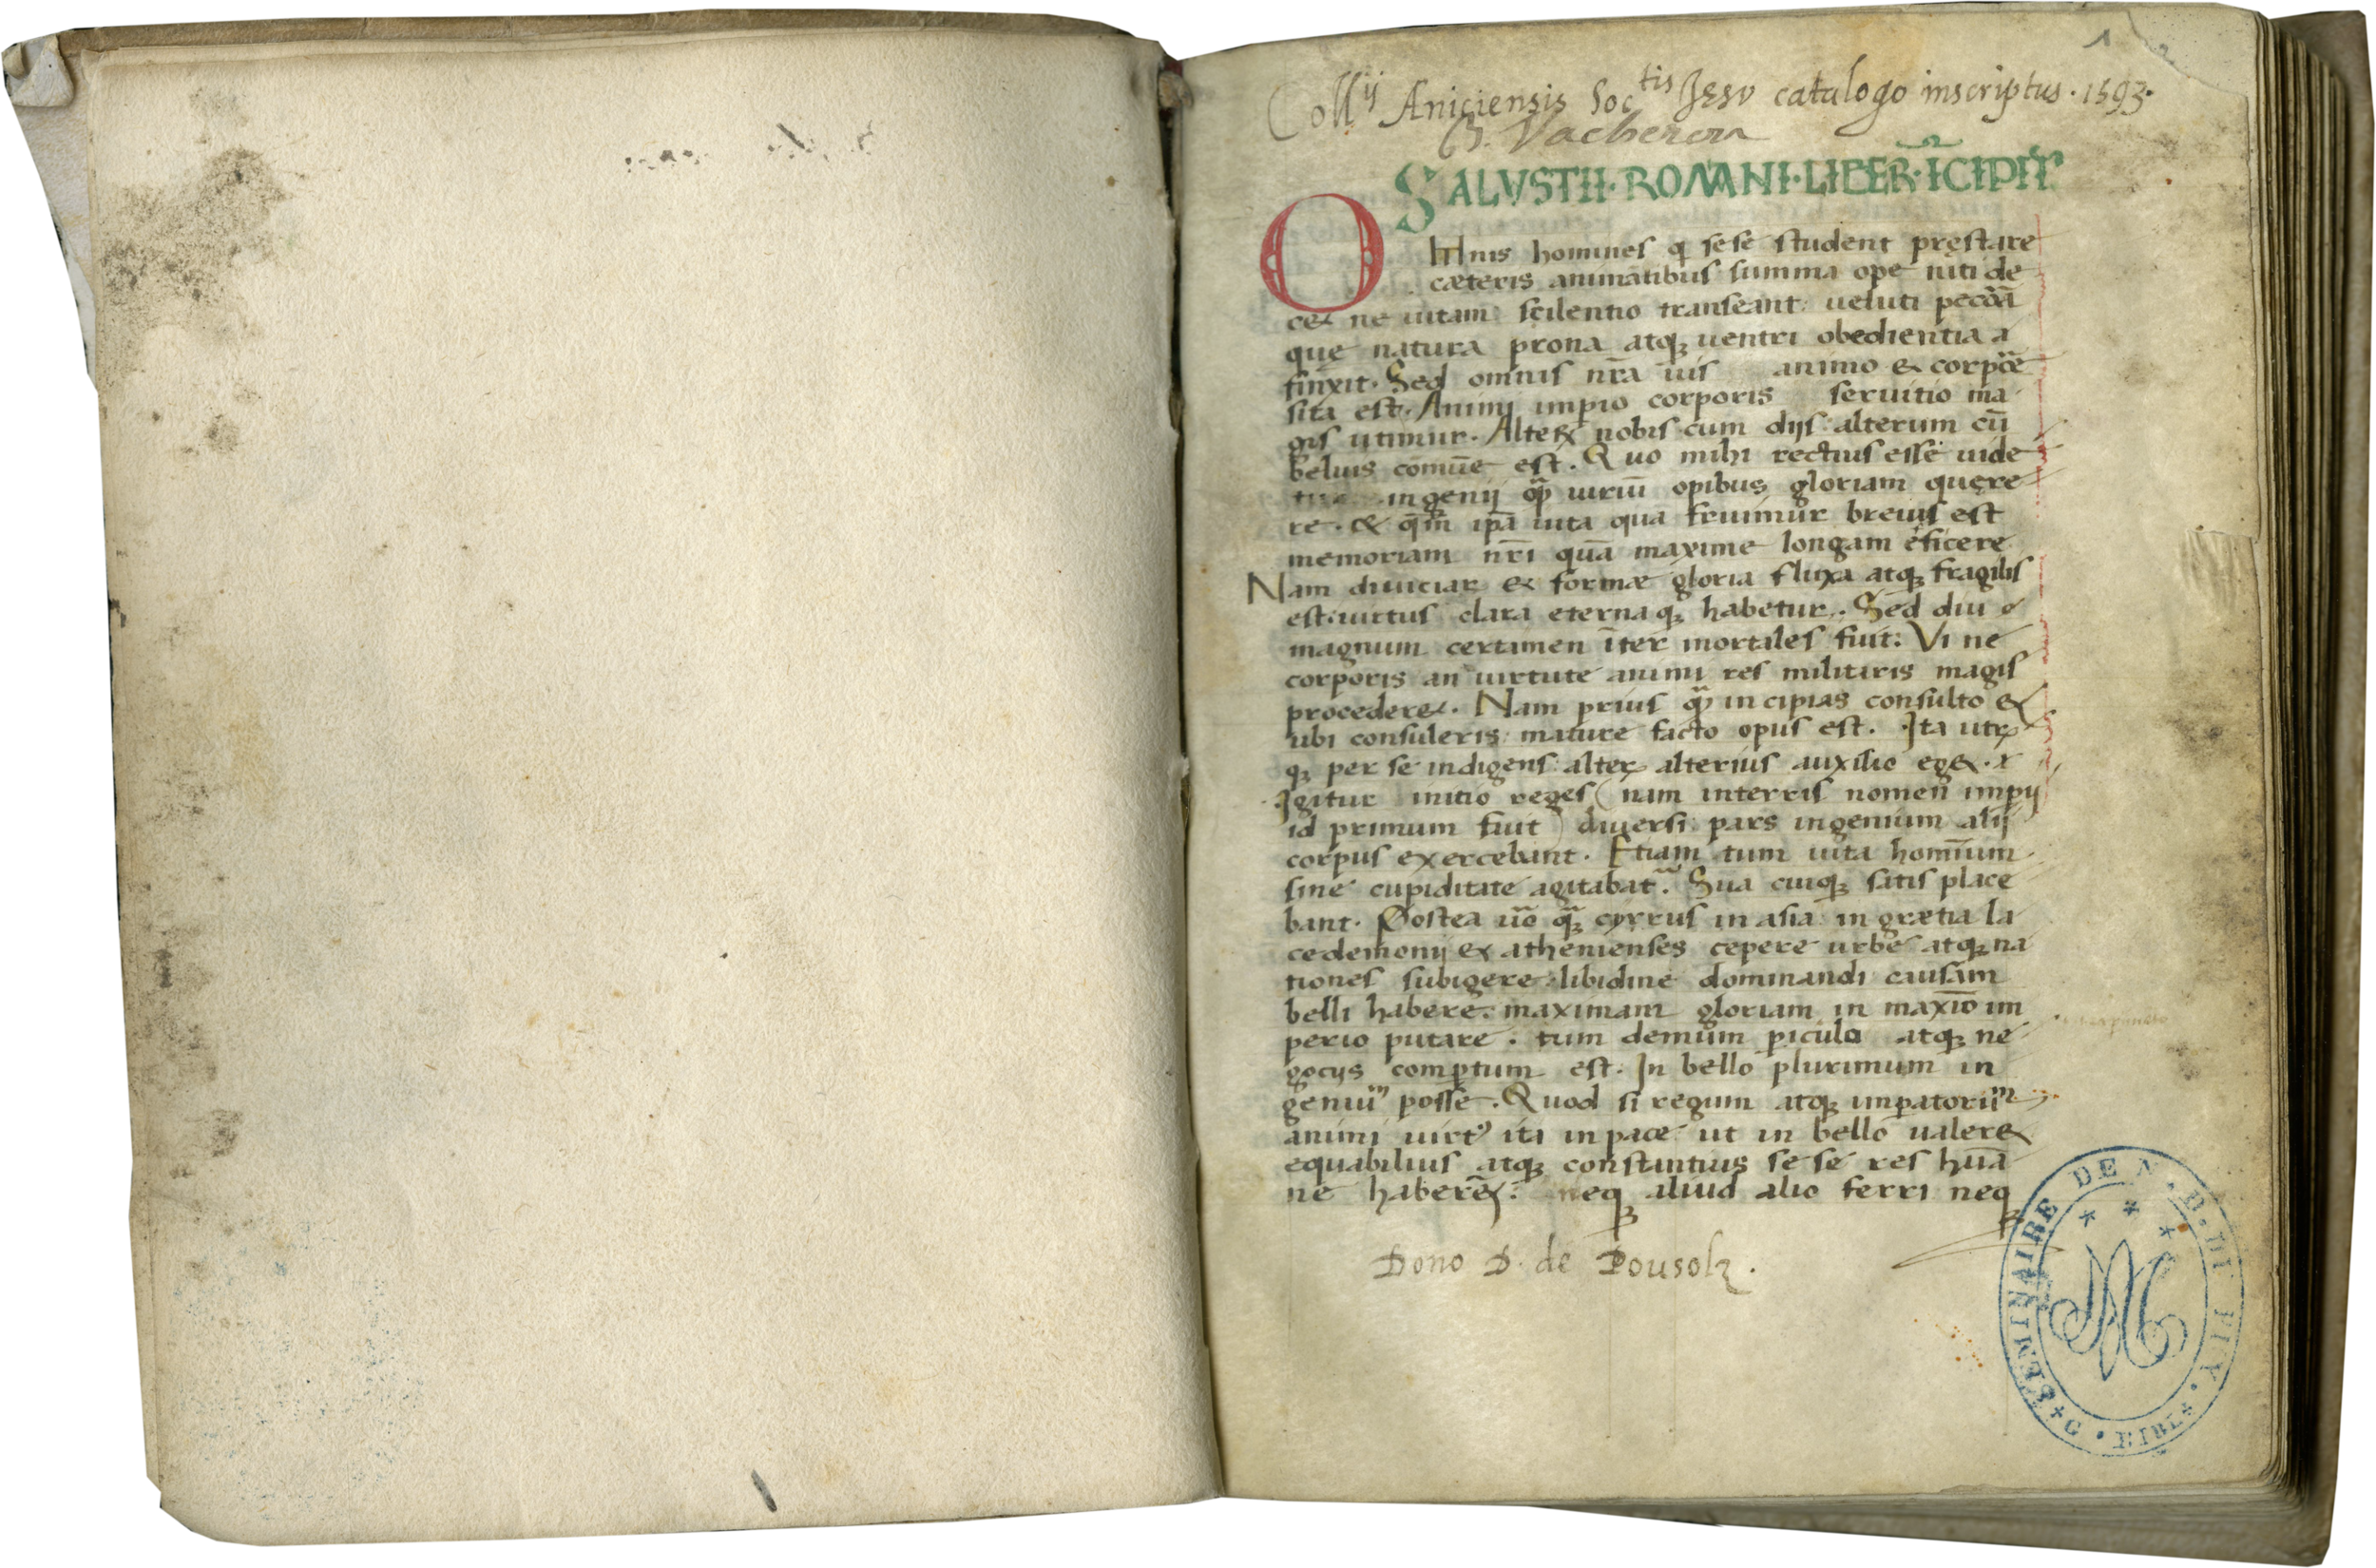 1
Coll^ij Aniciensis Soc^tis Jesv catalogo inscriptus. 1593.
Vacheron
SALVSTII·ROMANI·LIBER·ĪCIPIT
Omnis homines q sese student pręstare
cæteris animātibus summa ope niti de
cet ne uitam scilentio transeant: ueluti pecora
quę natura prona atq; uentri obedientia
finxit. Sed omnis nr̄a uis animo & corpore
sita est. Animi imp̄io corporis seruitio ma
gis utimur. Alterꝝ nobis cum dijs: alterum cū
beluis comūe est. Quo mihi rectius esse uide
tur ingenij qͣꝫ uiriū opibus gloriam quęre
re. & qm̄ ip̄a uita qua fruimur breuis est
memoriam nr̄i quā maxime longam eficere
Nam diuiciaꝝ & formæ gloria fluxa atq; fragilis
est: uirtus clara eternaq; habetur. Sed diu
magnum certamen īter mortales fuit: Vi ne
corporis an uirtute animi res militaris magis
procederet. Nam prius qͣꝫ incipias consulto &
ubi consuleris: mature facto opus est. Ita utr̄
q; per se indigens: alteꝝ alterius auxilio eget.
Igitur initio reges (nam interris nomen imp̄ij
id primum fuit) diuersi: pars ingenium alij
corpus exercebant. Etiam tum uita hominum
sine cupiditate agitabat^r. Sua cuiq; satis place
bant. Postea uo q; cyrrus in asia: in grætia la
cedemonij & athenienses cepere urbes atq; na
tiones subigere: libidine dominandi causam
belli habere: maximam gloriam in maxīo im
perio putare. tum demum ꝑiculo atq; ne
gocijs comꝑtum est. In bello plurimum in
geniū posse. Quod si regum atq; imꝑatoriū
animi uirt9 ita in pace ut in bello ualeret
equabilius atq; constantius sese res huā
ne haberēt: neq; aliud alio ferri neq;
Dono D. de Pousolz.
G. SEMINAIRE DE N. D. DU PUY. BIBL